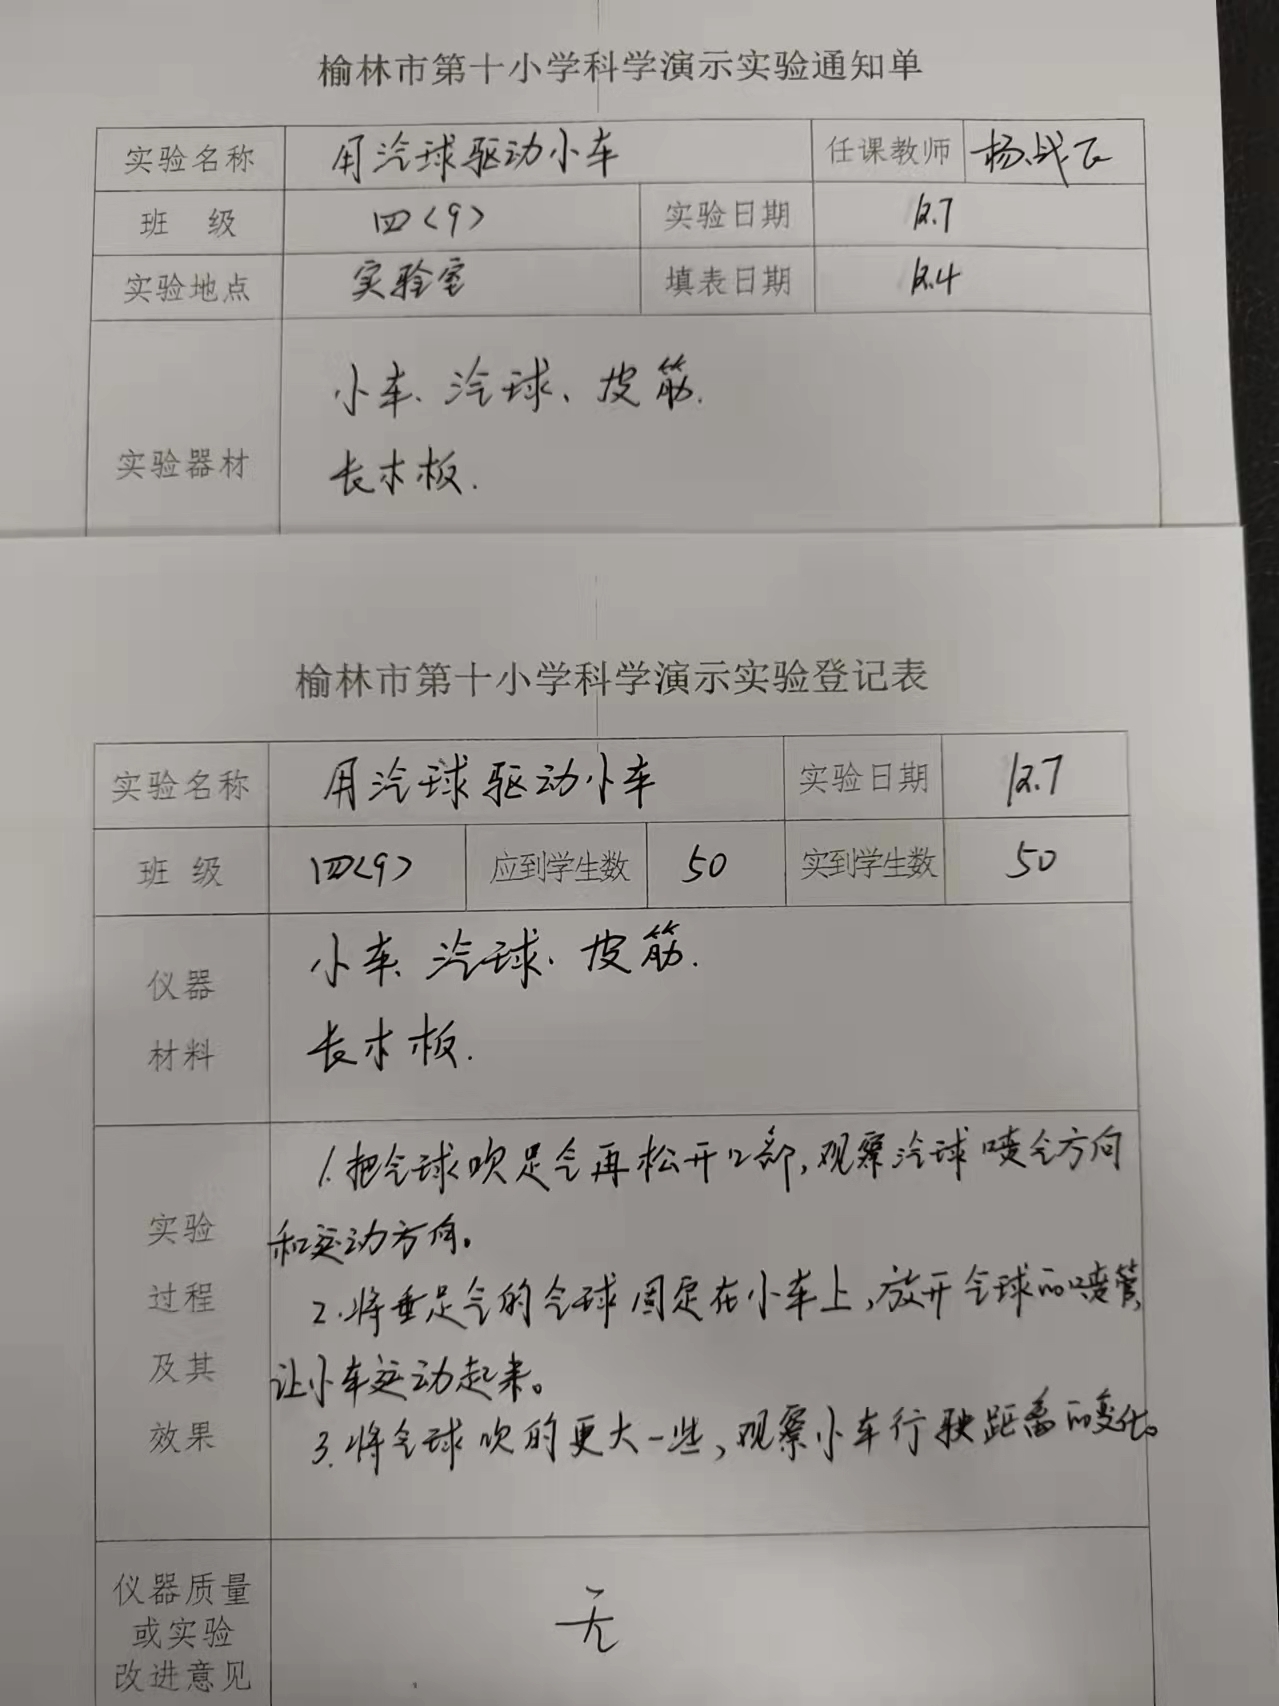 榆林市第十小学科学演示实验通知单
实验名称 用汽球驱动小车 任课教师 杨战飞
班 级 四(9) 实验日期 12.7
实验地点 实验室 填表日期 12.4
小车、汽球、皮筋.
实验器材
长木板.
榆林市第十小学科学演示实验登记表
实验名称 用汽球驱动小车 实验日期 12.7
班 级 四(9) 应到学生数 50 实到学生数 50
小车、汽球、皮筋.
仪器
长木板.
材料
1.把气球吹足气再松开口部,观察汽球喷气方向
实验
和运动方向。
过程
2.将垂足气的气球固定在小车上,放开气球的喷管,
及其
让小车运动起来。
效果
3.将气球吹的更大一些,观察小车行驶距离的变化。
仪器质量
或实验
改进意见
无